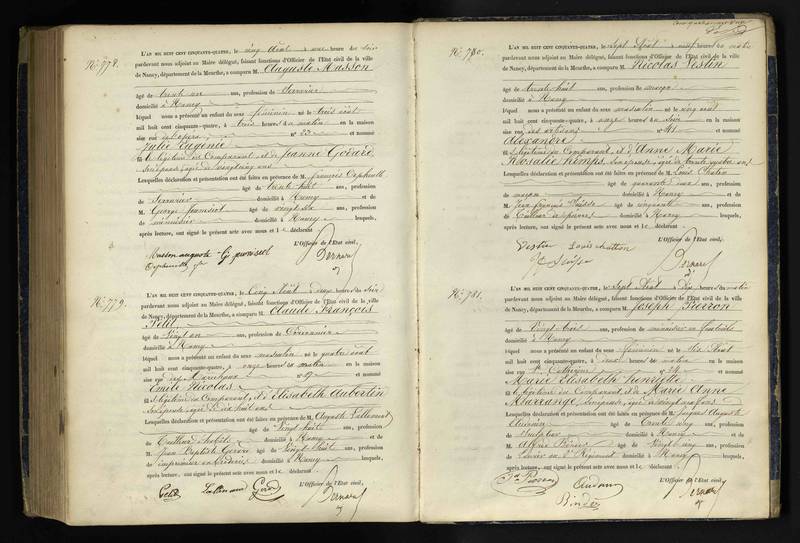 N.° 778.
L'AN MIL HUIT CENT CINQUANTE-QUATRE, le cinq Août, à une heure du soir
pardevant nous adjoint au Maire délégué, faisant fonctions d'Officier de l'Etat civil de la ville
de Nancy, département de la Meurthe, a comparu M. Auguste Masson
âgé de trente un ans, profession de Serrurier
domicilié à Nancy
lequel nous a présenté un enfant du sexe féminin né le trois août
mil huit cent cinquante-quatre, à trois heures du matin en la maison
sise rue n° 23 et nommé
Julie Eugénie
fille légitime du Comparant, et de Jeanne Godard,
son épouse, âgée de vingt cinq ans
Lesquelles déclaration et présentation ont été faites en présence de M. François
âgé de trente huit ans, profession
de Serrurier domicilié à Nancy et de
M. George âgé de vingt six ans, profession
de menuisier domicilié à Nancy lesquels,
après lecture, ont signé le présent acte avec nous et le déclarant
L'Officier de l'Etat civil,
Masson auguste
Bernard
N.° 779.
L'AN MIL HUIT CENT CINQUANTE-QUATRE, le Cinq Août, à Deux heures du Soir
pardevant nous adjoint au Maire délégué, faisant fonctions d'Officier de l'Etat civil de la ville
de Nancy, département de la Meurthe, a comparu M. Claude François
Petit
âgé de Vingt un ans, profession de
domicilié à Nancy
lequel nous a présenté un enfant du sexe masculin né le quatre août
mil huit cent cinquante-quatre, à onze heures du matin en la maison
sise rue des Maréchaux n° 19 et nommé
Emile Nicolas
fils légitime du Comparant, et d'Elisabeth Aubertin
son épouse, âgée de dix huit ans
Lesquelles déclaration et présentation ont été faites en présence de M. Auguste Lallemant
âgé de Vingt huit ans, profession
de Tailleur d'habits domicilié à Nancy et de
M. Jean Baptiste Gérard âgé de Vingt huit ans, profession
de imprimeur domicilié à Nancy lesquels,
après lecture, ont signé le présent acte avec nous et le déclarant
L'Officier de l'Etat civil,
Petit Lallemand Gerard
Bernard
N.° 780.
L'AN MIL HUIT CENT CINQUANTE-QUATRE, le Sept Août, à neuf heures du matin
pardevant nous adjoint au Maire délégué, faisant fonctions d'Officier de l'Etat civil de la ville
de Nancy, département de la Meurthe, a comparu M. Nicolas Vestin
âgé de trente huit ans, profession de maçon
domicilié à Nancy
lequel nous a présenté un enfant du sexe masculin né le cinq août
mil huit cent cinquante-quatre, à onze heures du soir en la maison
sise rue des artisans n° 41 et nommé
Alexandre
fils légitime du Comparant, et d'Anne Marie
Rosalie Kemps, son épouse, âgée de trente quatre ans
Lesquelles déclaration et présentation ont été faites en présence de M. Louis
âgé de quarante deux ans, profession
de maçon domicilié à Nancy et de
M. Jean François âgé de cinquante ans, profession
de Tailleur de pierres domicilié à Nancy lesquels,
après lecture, ont signé le présent acte avec nous et le déclarant
L'Officier de l'Etat civil,
Vestin Louis
Bernard
N.° 781.
L'AN MIL HUIT CENT CINQUANTE-QUATRE, le Sept Août, à Dix heures du matin
pardevant nous adjoint au Maire délégué, faisant fonctions d'Officier de l'Etat civil de la ville
de Nancy, département de la Meurthe, a comparu M. Joseph Pierron
âgé de Vingt trois ans, profession de menuisier en fauteuils
domicilié à Nancy
lequel nous a présenté un enfant du sexe féminin né le Six Août
mil huit cent cinquante-quatre, à heures du matin en la maison
sise rue S.te Catherine n° 24 et nommé
Marie Elisabeth Henriette
fille légitime du Comparant, et de Marie Anne
son épouse, âgée de vingt ans
Lesquelles déclaration et présentation ont été faites en présence de M. Jacques Auguste
âgé de Trente cinq ans, profession
de Sculpteur domicilié à Nancy et de
M. âgé de Vingt cinq ans, profession
de domicilié à Nancy lesquels,
après lecture, ont signé le présent acte avec nous et le déclarant
L'Officier de l'Etat civil,
Bernard